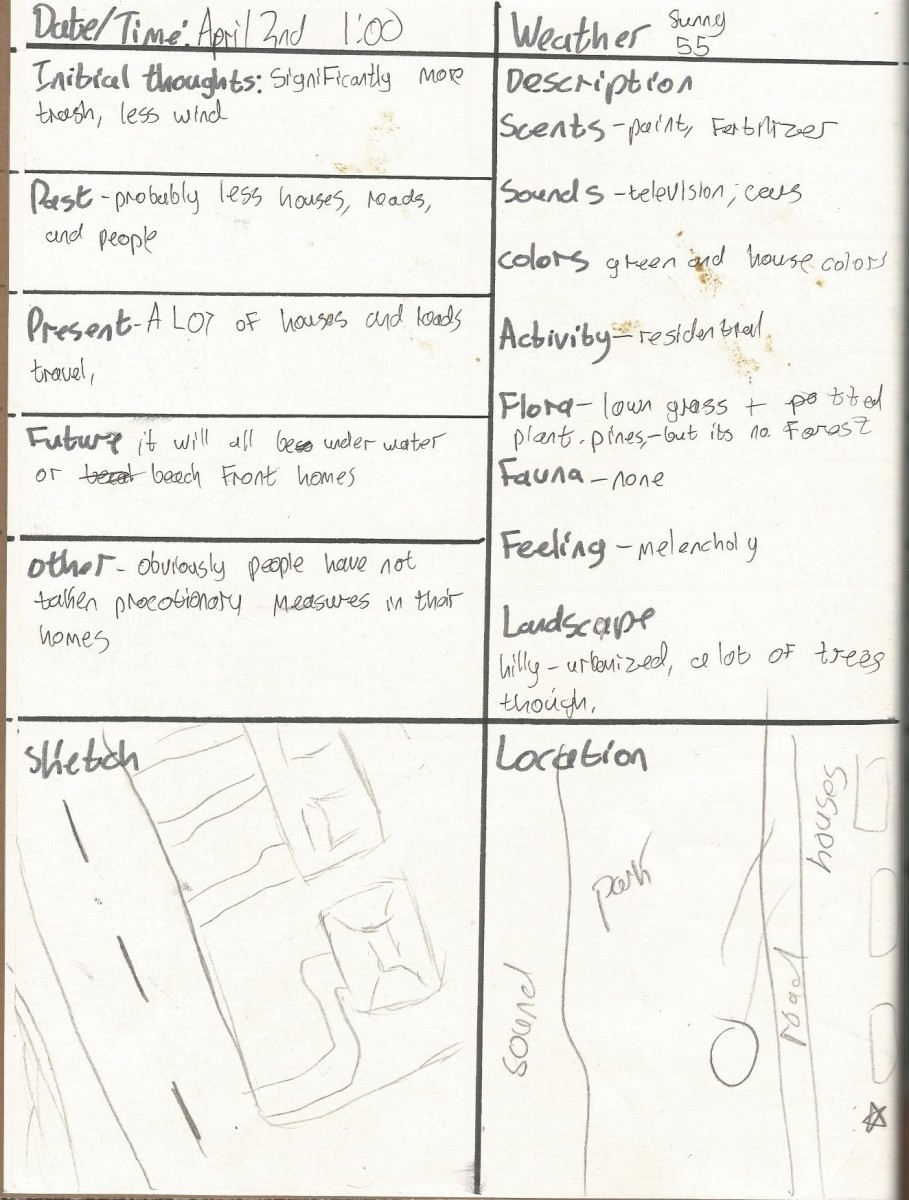 Date/Time: April 2nd 1:00
Weather Sunny
55
Initial thoughts: Significantly more
trash, less wind
Past - probably less houses, roads,
and people
Present - A LOT of houses and roads
travel,
Future it will all be under water
or beach front homes
other - obviously people have not
taken procotionary measures in their
homes
Description
Scents - paint, Fertilizer
Sounds - television, cars
colors green and house colors
Activity - residential
Flora - lawn grass + potted
plant. pines, - but its no Forest
Fauna - none
Feeling - melencholy
Landscape
hilly - urbanized, a lot of trees
though,
Sketch
Location
houses
park
road
sound